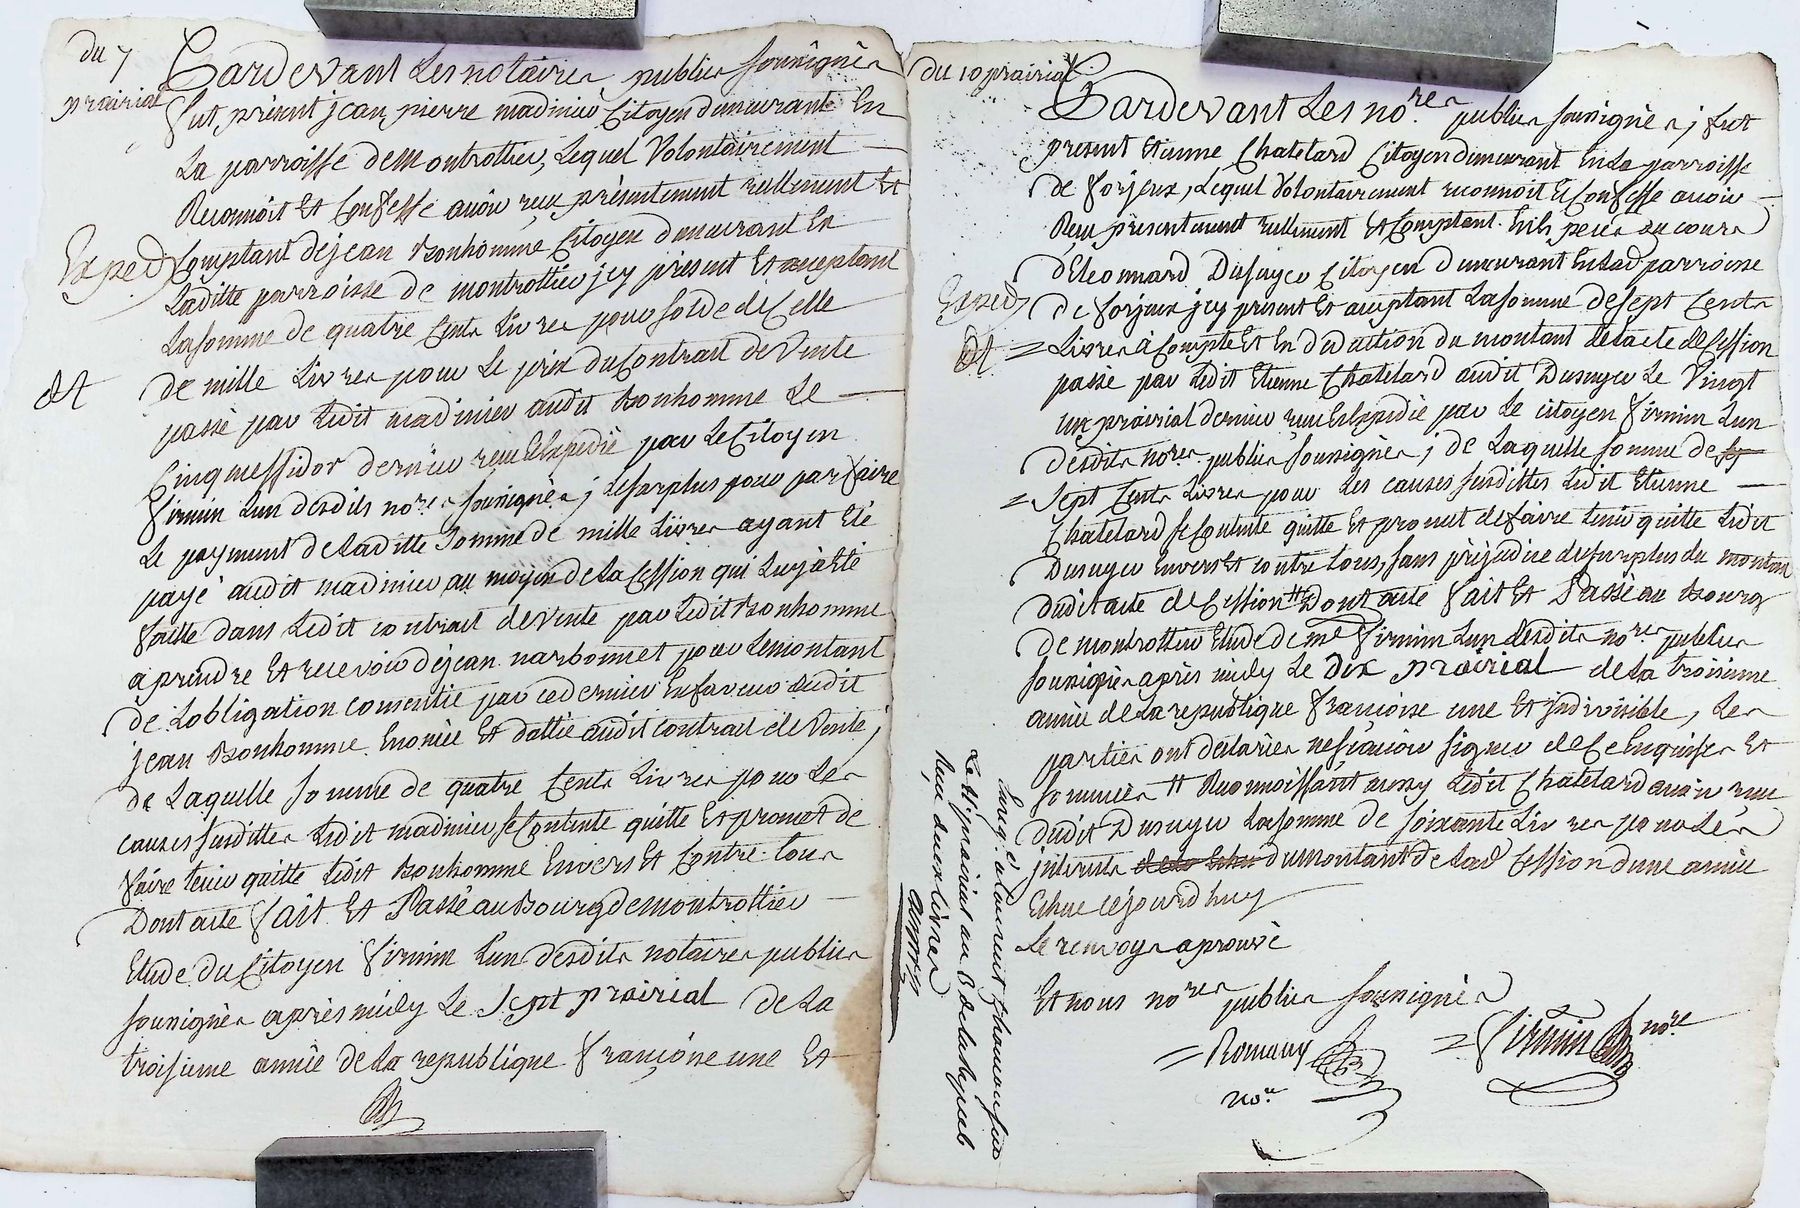 du 7
prairial
Pardevant Les notaires publics soussignés
fut présent jean pierre madinier Citoyen demeurant En
La parroisse de montrottier, Lequel Volontairement
Reconnoit Et Confesse avoir reçu présentement rellement Et
Exped
Comptant de jean Bonhomme Citoyen demeurant En
Laditte parroisse de montrottier jcy présent Et acceptant
La somme de quatre Cents Livres pour solde de Celle
de mille Livres pour Le prix du Contrait de Vente
passé par Ledit madinier audit Bonhomme Le
Cinq messidor dernier reçu Et Expedié par Le Citoyen
firmin Lun desdits nores soussignés ; Le surplus pour parfaire
Le payment de Laditte Somme de mille Livres ayant Eté
payé audit madinier au moyen de La Cession qui Luy à Eté
faitte dans Ledit contrait de Vente par Ledit Bonhomme
a prendre Et recevoir de jean narbonnet pour Le montant
de Lobligation consentie par ce dernier En faveur dudit
jean Bonhomme Enoncée Et dattée audit contrait de Vente ;
de Laquelle somme de quatre Cents Livres pour Les
causes susdittes Ledit madinier se Contente quitte Et promet de
faire tenir quitte Ledit Bonhomme Envers Et Contre tous
Dont acte fait Et Passé au Bourg de montrottier
Etude du Citoyen firmin L'un desdits notaires publics
soussignés après midy Le Sept prairial de La
troisieme année de La republique françoise une Et
du 10 prairial
Pardevant Les nores publics soussignés ; fut
present Etienne Chatelard Citoyen demeurant En La parroisse
de forjeux, Lequel Volontairement reconnoit Et Confesse avoir
Reçu présentement rellement Et Comptant En Especes au cours
d'Eleonnard Dusuyer Citoyen demeurant En Lad parroisse
Exped
de forjeux jcy présent Et acceptant La somme de sept Cents
Livres à Compte Et En deduction du montant de Lacte de Cession
passé par Ledit Etienne Chatelard audit Dusuyer Le Vingt
un prairial dernier reçu Et Expedié par Le citoyen firmin Lun
desdits nores publics soussignés ; de Laquelle somme de
Sept Cents Livres pour Les causes susdittes Ledit Etienne
Chatelard se Contente quitte Et promet de faire tenir quitte Ledit
Dusuyer Envers Et contre tous, sans prejudice du surplus du montant
dudit acte de Cession Dont acte fait Et Passé au Bourg
de montrottier Etude de me firmin Lun desdits nores publics
soussignés après midy Le Dix prairial de La troisieme
année de La republique françoise une Et jndivisible, Les
parties ont déclarées ne sçavoir signer de Ce Enquises Et
sommées # Reconnoissant aussy Ledit Chatelard avoir reçu
dudit Dusuyer La somme de soixante Livres pour Les
jnterests du montant de Lad Cession d'une année
Echue cejourd'huy
Le renvoy aprouvé
Et nous nores publics soussignés
Romany nore
firmin nore